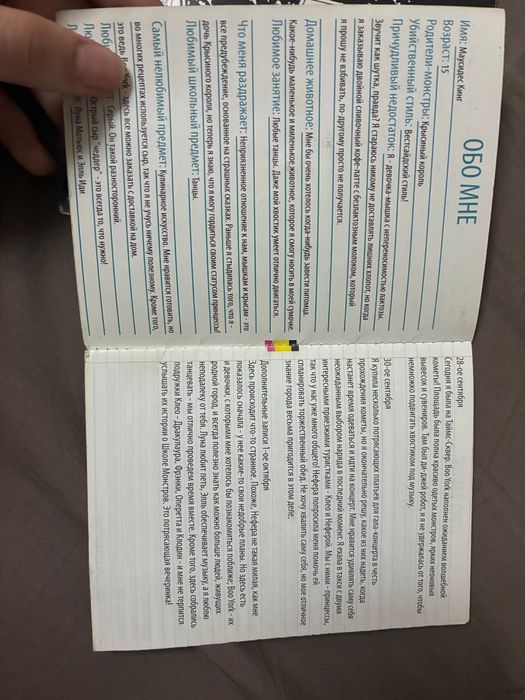 ОБО МНЕ
Имя: Маусидес Кинг
Возраст: 15
Родители-монстры: Крысиный король
Убийственный стиль: Вестсайдский стиль!
Причудливый недостаток: Я - девочка-мышка с непереносимостью лактозы.
Звучит как шутка, правда? Я стараюсь никому не доставлять лишних хлопот, но когда
я заказываю двойной сливочный кофе-латте с безлактозным молоком, который
я прошу не взбивать, по-другому просто не получается.
Домашнее животное: Мне бы очень хотелось когда-нибудь завести питомца.
Какое-нибудь маленькое и миленькое животное, которое я смогу носить в моей сумочке.
Любимое занятие: Любые танцы. Даже мой хвостик умеет отлично двигаться.
Что меня раздражает: Неприязненное отношение к нам, мышкам и крысам - это
все предубеждение, основанное на страшных сказках. Раньше я стыдилась того, что я -
дочь Крысиного короля, но теперь я знаю, что я могу гордиться своим статусом принцессы!
Любимый школьный предмет: Танцы.
Самый нелюбимый предмет: Кулинарное искусство. Мне нравится готовить, но
во многих рецептах используется сыр, так что я не учусь ничему полезному. Кроме того,
это ведь Boo York - здесь все можно заказать с доставкой на дом.
Серый. Он такой разносторонний.
Острый сыр "чеддер" - это всегда то, что нужно!
Луна Мотьюс и Элль Иди
28-ое сентября
Сегодня я была на Таймс-Сквер. Boo York наполнен ожиданием волшебной
кометы! Площадь была полна красиво одетых монстров, ярких неоновых
вывесок и сувениров. Там был ди-джей робот, и я не удержалась от того, чтобы
немножко подвигать хвостиком под музыку.
30-ое сентября
Я купила несколько потрясающих платьев для гала-концерта в честь
прохождения кометы, но я окончательно решу, какое из них надеть, когда
настанет время одеваться и идти на концерт. Мне нравится удивлять саму себя
неожиданным выбором наряда в последний момент. Я ехала в такси с двумя
интересными приезжими туристками - Клео и Неферой. Мы с ними - принцессы,
так что у нас уже много общего! Нефера попросила меня помочь ей
спланировать торжественный обед. Не хочу хвалить саму себя, но мое отличное
знание города весьма пригодится в этом деле.
Дополнительные записи 1-ое октября
Здесь происходит что-то странное. Похоже, Нефера не такая милая, как мне
показалось сначала - у нее какие-то свои недобрые планы. Но здесь есть
и девочки, с которыми мне хотелось бы познакомиться поближе; Boo York - их
родной город, и всегда полезно знать как можно больше людей, живущих
неподалеку от тебя. Луна любит петь, Элль обеспечивает музыку, а я люблю
танцевать - мы отлично проведем время вместе. Кроме того, здесь собрались
подружки Клео - Дракулаура, Фрэнки, Оперетта и Клодин - и мне не терпится
услышать их истории о Школе Монстров. Это потрясающая вечеринка!